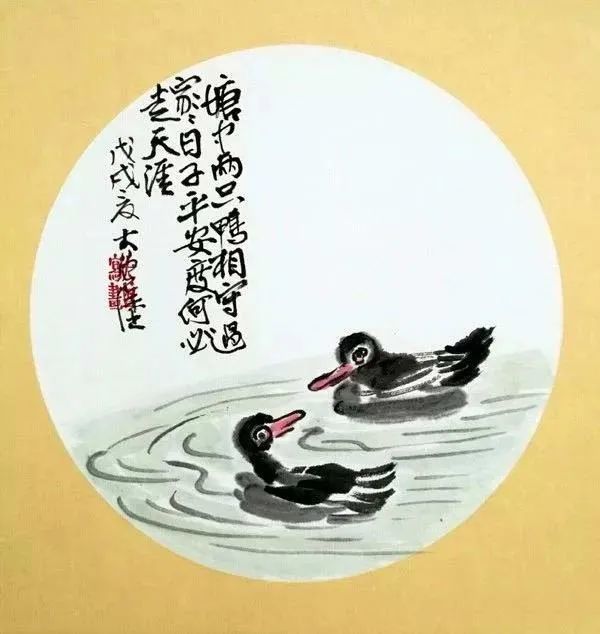 塘中两只鸭相守过
家〻日子平安度何必
走天涯
戊戌夏大